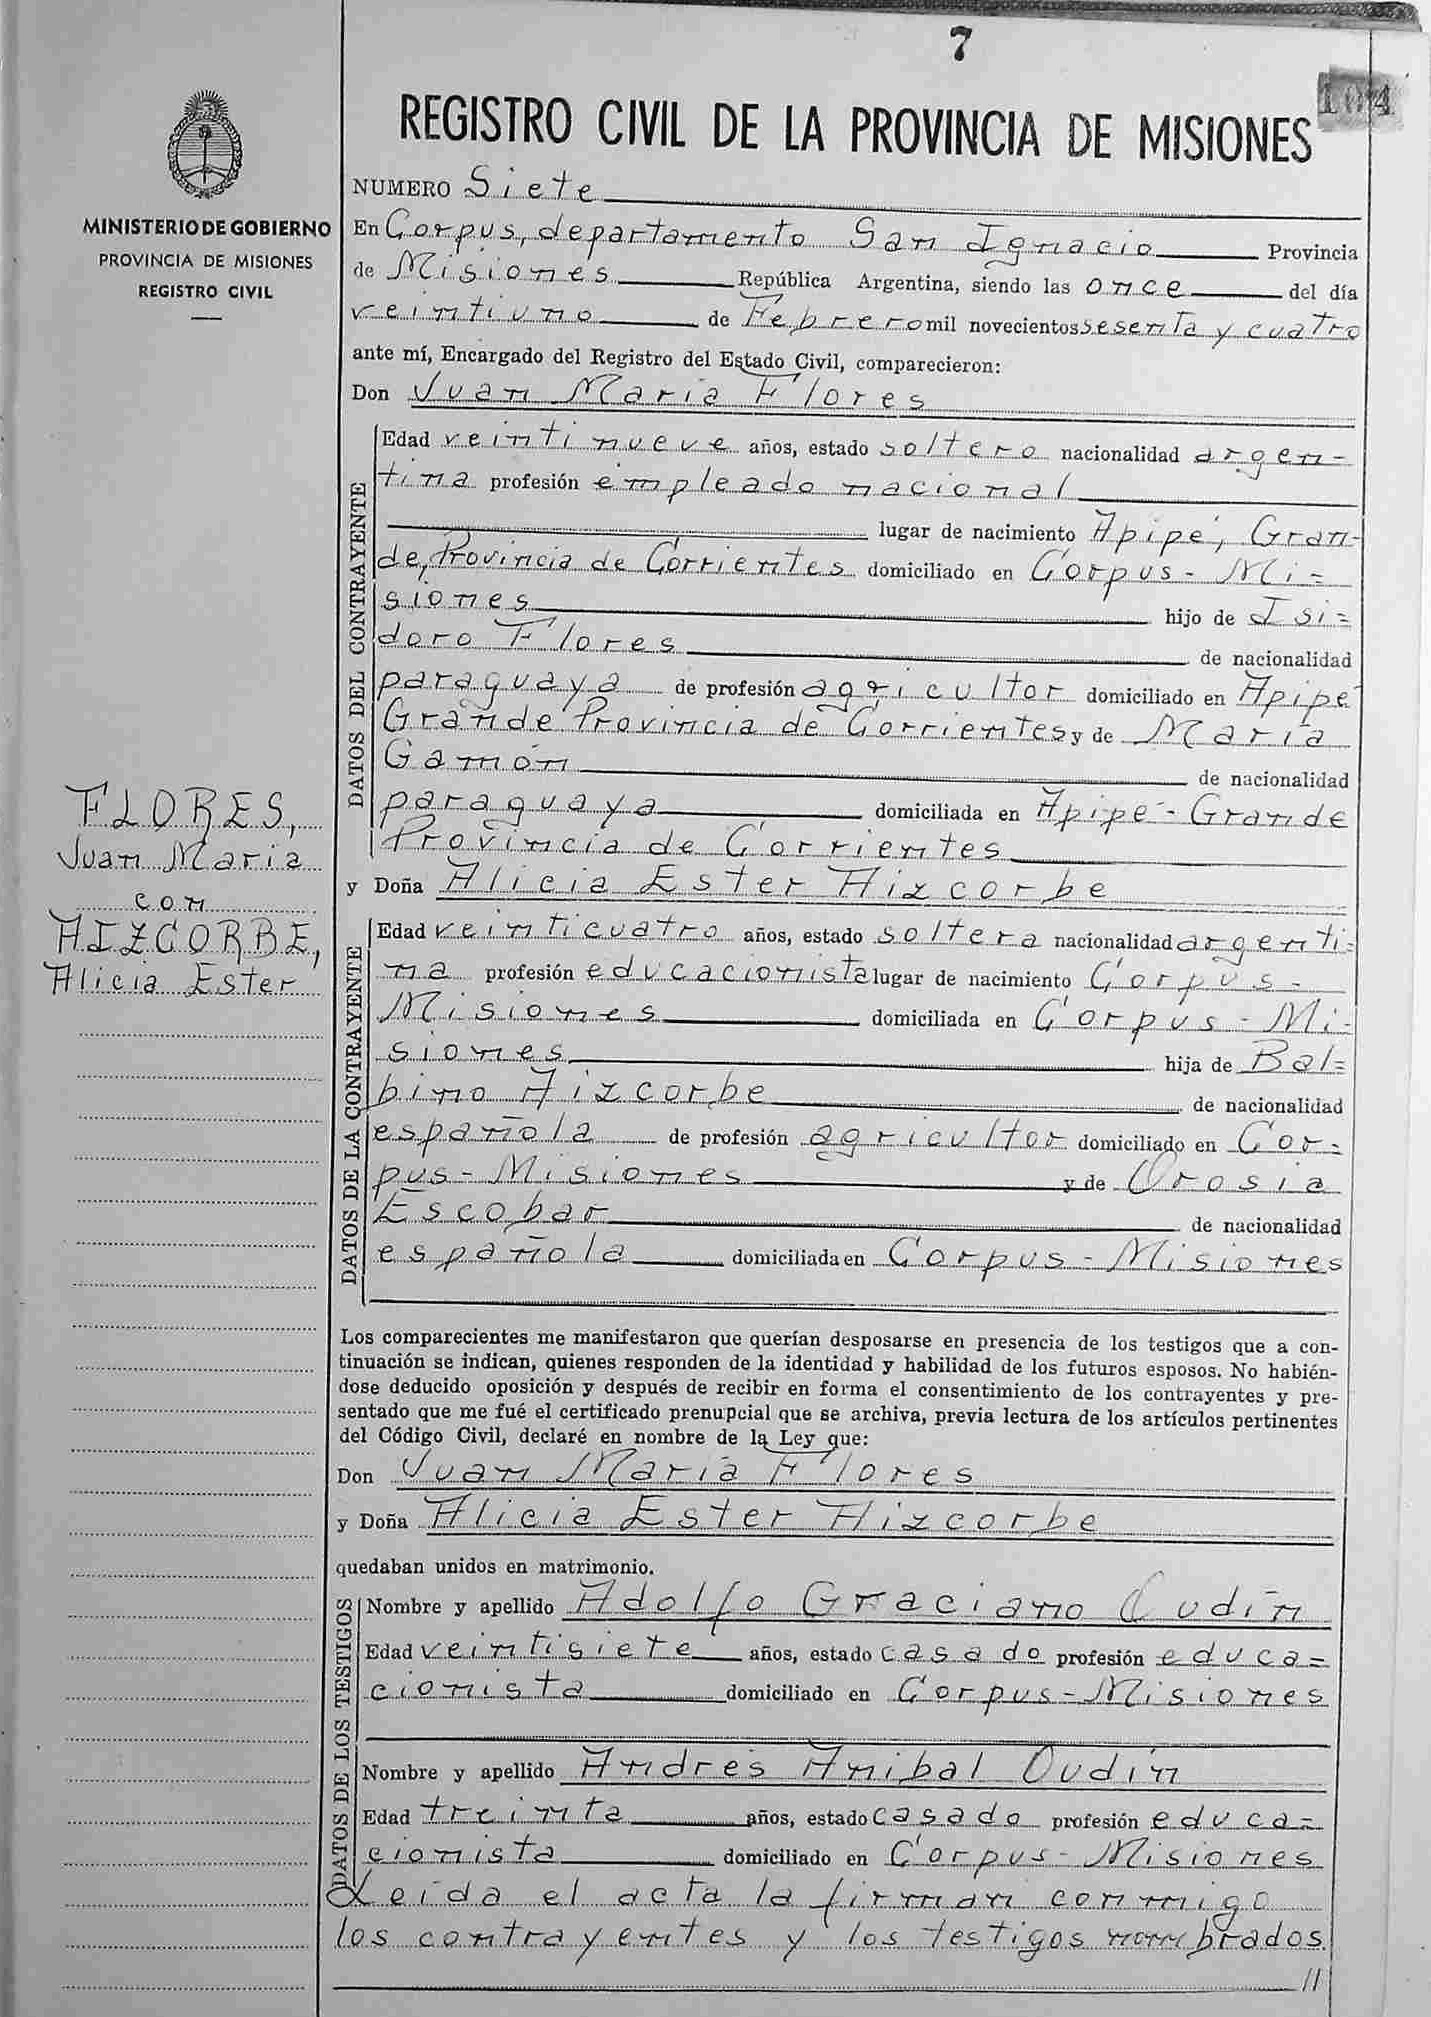 7
104
REGISTRO CIVIL DE LA PROVINCIA DE MISIONES
MINISTERIO DE GOBIERNO
PROVINCIA DE MISIONES
REGISTRO CIVIL
NUMERO Siete
En Corpus, departamento San Ignacio Provincia
de Misiones República Argentina, siendo las once del día
veintiuno de Febrero mil novecientos sesenta y cuatro
ante mí, Encargado del Registro del Estado Civil, comparecieron:
Don Juan Maria Flores
DATOS DEL CONTRAYENTE
Edad veintinueve años, estado soltero nacionalidad argen-
tina profesión empleado nacional
lugar de nacimiento Apipé, Gran-
de, Provincia de Corrientes domiciliado en Corpus - Mi=
siones hijo de Isi=
doro Flores de nacionalidad
paraguaya de profesión agricultor domiciliado en Apipé
Grande Provincia de Corrientes y de Maria
Gamón de nacionalidad
paraguaya domiciliada en Apipé - Grande
Provincia de Corrientes
FLORES,
Juan Maria
con
AIZCORBE,
Alicia Ester
y Doña Alicia Ester Aizcorbe
DATOS DE LA CONTRAYENTE
Edad veinticuatro años, estado soltera nacionalidad argenti=
na profesión educacionista lugar de nacimiento Corpus -
Misiones domiciliada en Corpus - Mi=
siones hija de Bal=
bino Aizcorbe de nacionalidad
española de profesión agricultor domiciliado en Cor=
pus - Misiones y de Orosia
Escobar de nacionalidad
española domiciliada en Corpus - Misiones
Los comparecientes me manifestaron que querían desposarse en presencia de los testigos que a con-
tinuación se indican, quienes responden de la identidad y habilidad de los futuros esposos. No habién-
dose deducido oposición y después de recibir en forma el consentimiento de los contrayentes y pre-
sentado que me fué el certificado prenupcial que se archiva, previa lectura de los artículos pertinentes
del Código Civil, declaré en nombre de la Ley que:
Don Juan Maria Flores
y Doña Alicia Ester Aizcorbe
quedaban unidos en matrimonio.
DATOS DE LOS TESTIGOS
Nombre y apellido Adolfo Graciano Oudin
Edad veintisiete años, estado casado profesión educa=
cionista domiciliado en Corpus - Misiones
Nombre y apellido Andrés Anibal Oudin
Edad treinta años, estado casado profesión educa=
cionista domiciliado en Corpus - Misiones
Leida el acta la firman conmigo
los contrayentes y los testigos nombrados.
//